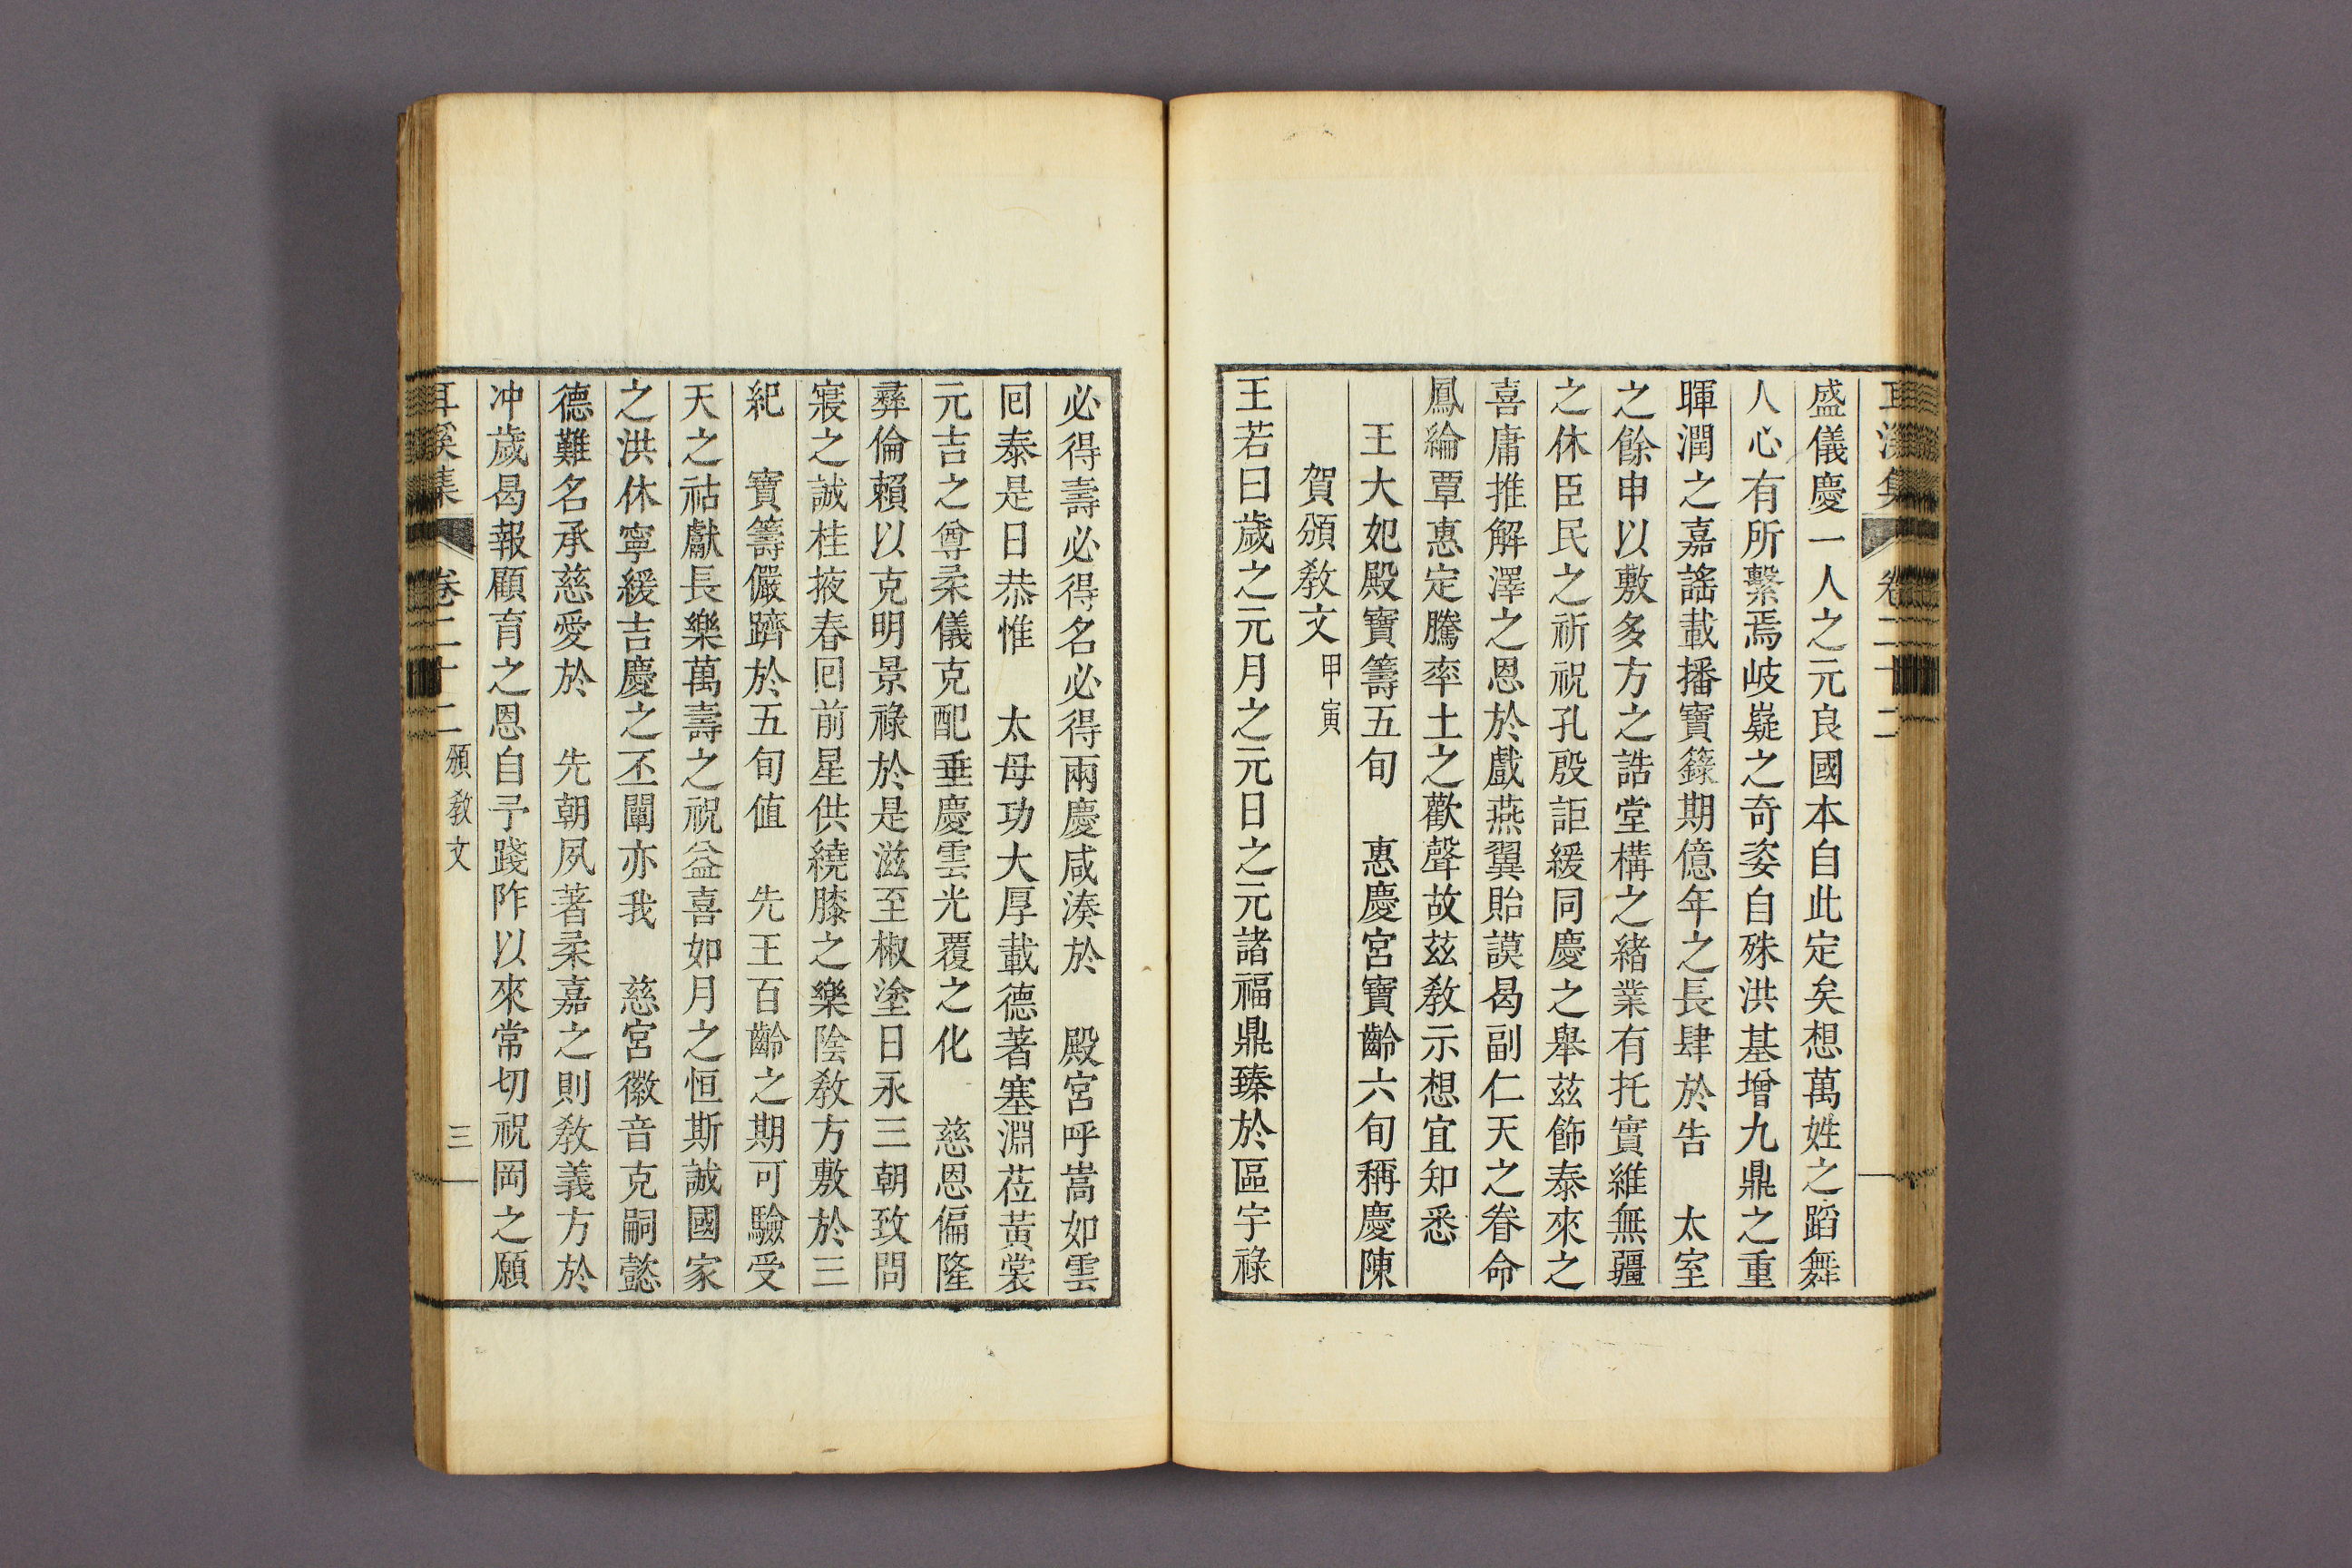 盛儀慶一人之元良國本自此定矣想萬姓之蹈舞
人心有所繫焉岐嶷之奇姿自殊洪基增九鼎之重
暉潤之嘉謠載播寶籙期億年之長肆於告　太室
之餘申以敷多方之誥堂構之緖業有托實維無疆
之休臣民之祈祝孔殷詎緩同慶之舉茲飾泰來之
喜庸推解澤之恩於戲燕翼貽謨曷副仁天之眷命
鳳綸覃惠定騰率土之歡聲故玆敎示想宜知悉
王大妃殿寶籌五旬　惠慶宮寶齡六旬稱慶陳
賀頒敎文甲寅
王若曰歲之元月之元日之元諸福鼎臻於區宇祿
必得壽必得名必得兩慶咸湊於　殿宮呼嵩如雲
回泰是日恭惟　太母功大厚載德著塞淵莅黃裳
元吉之尊柔儀克配垂慶雲光覆之化　慈恩偏隆
彛倫賴以克明景祿於是滋至椒塗日永三朝致問
寢之誠桂掖春回前星供繞膝之樂陰敎方敷於三
紀　寶籌儼躋於五旬值　先王百齡之期可驗受
天之祜獻長樂萬壽之祝益喜如月之恒斯誠國家
之洪休寧緩吉慶之丕闡亦我　慈宮徽音克嗣懿
德難名承慈愛於　先朝夙著柔嘉之則敎義方於
冲歲曷報顧育之恩自予踐阼以來常切祝岡之願
耳溪集　卷二十二　頒敎文　三